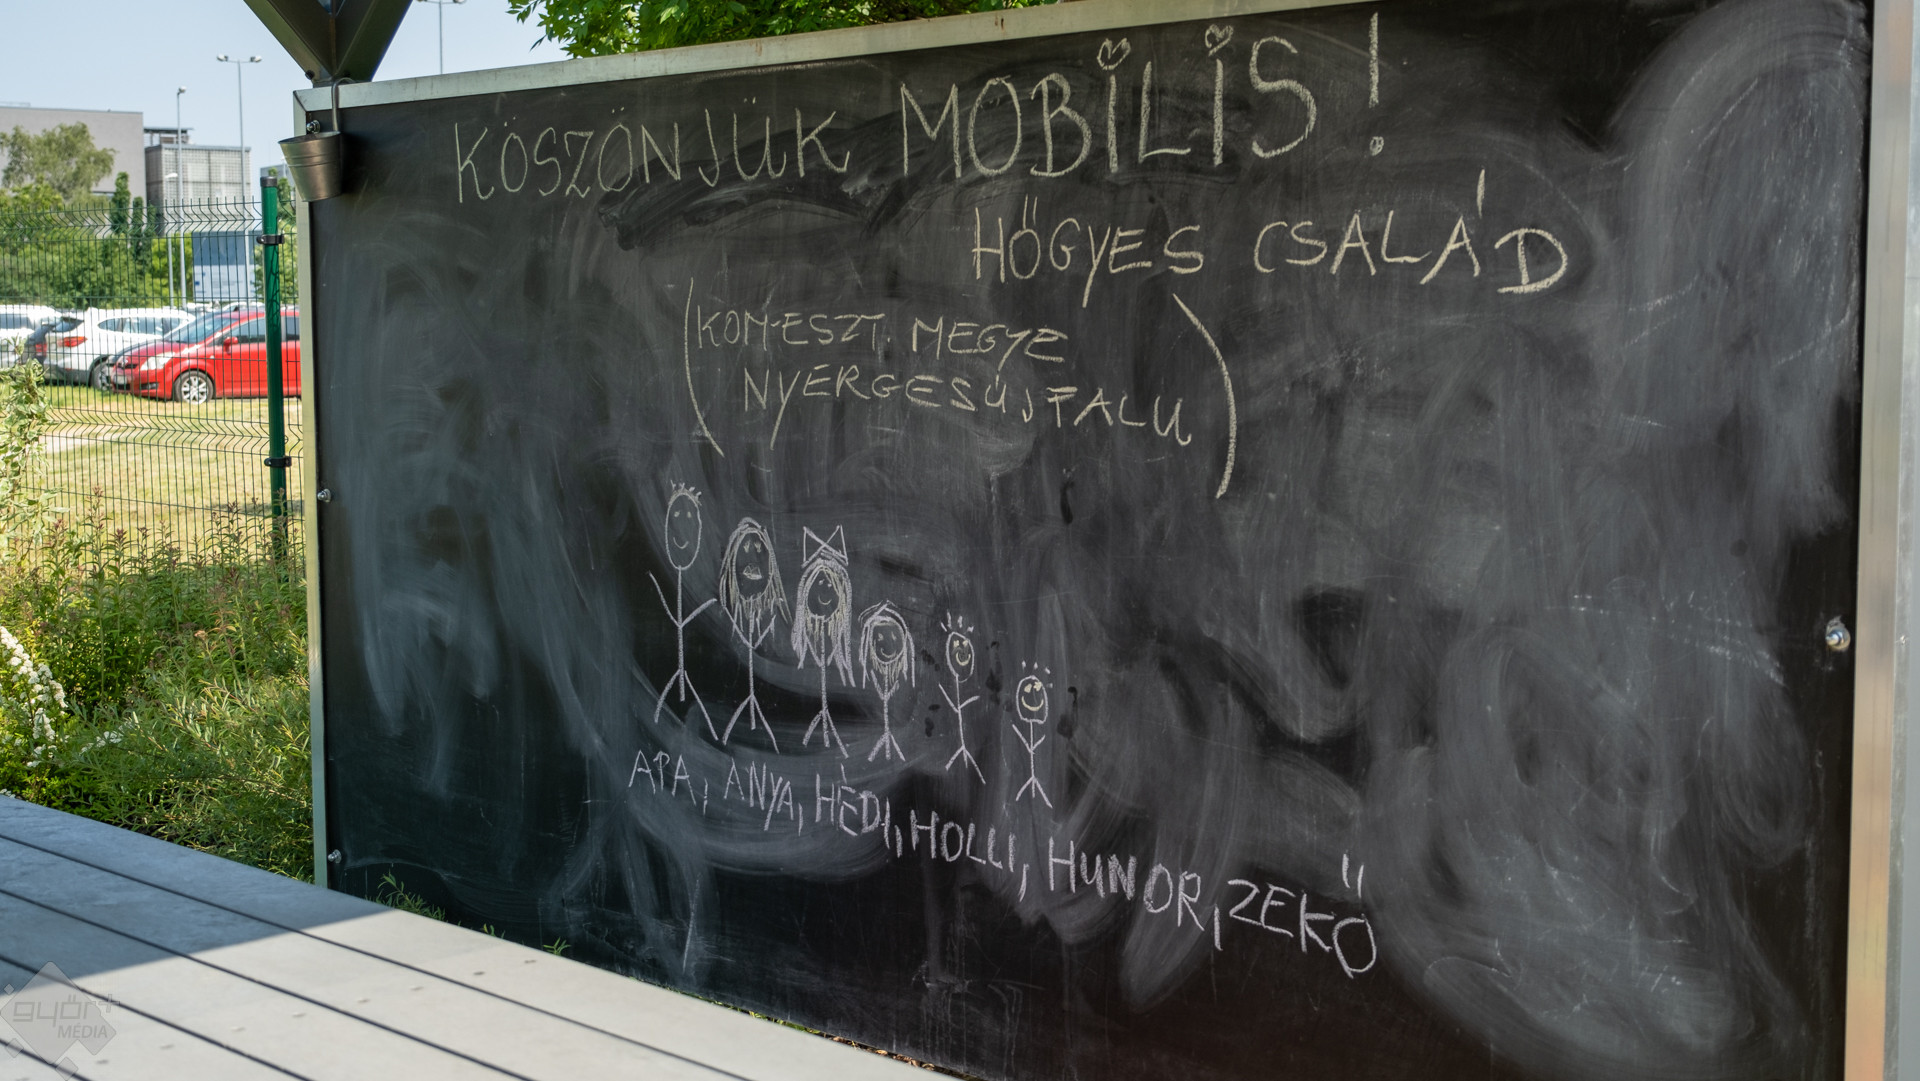 KÖSZÖNJÜK MOBILIS!
HŐGYES CSALÁD
(KOM-ESZT. MEGYE
NYERGESÚJFALU)
APA, ANYA, HÉDI, HOLLI, HUNOR, ZEKŐ
győr+
MÉDIA